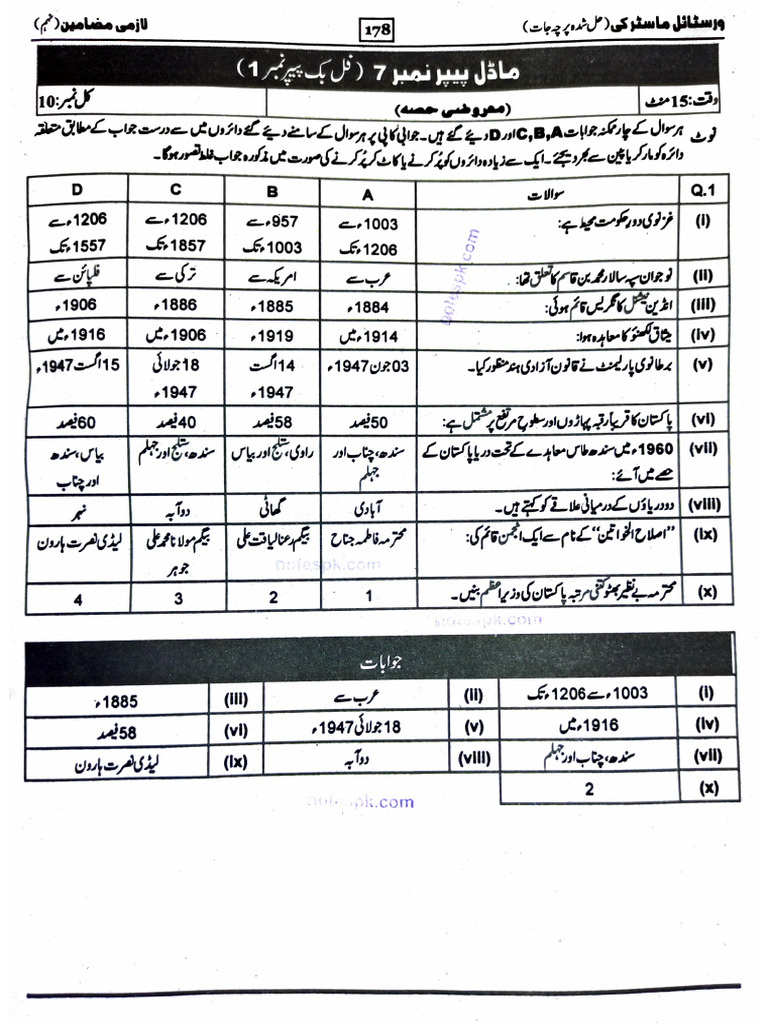 ورسٹائل ماسٹر کی (حل شدہ پرچہ جات) 178 لازمی مضامین (نہم)
ماڈل پیپر نمبر 7 (فل بک پیپر نمبر 1)
وقت: 15 منٹ (معروضی حصہ) کل نمبر: 10
نوٹ ہر سوال کے چار ممکنہ جوابات C,B,A اور D دیئے گئے ہیں۔ جوابی کاپی پر ہر سوال کے سامنے دیئے گئے دائروں میں سے درست جواب کے مطابق متعلقہ
دائرہ کو مارکر یا پین سے بھر دیجئے۔ ایک سے زیادہ دائروں کو پُر کرنے یا کاٹ کر پُر کرنے کی صورت میں مذکورہ جواب غلط تصور ہوگا۔
Q.1 سوالات A B C D
(i) غزنوی دور حکومت محیط ہے: 1003ء سے 1206ء تک 957ء سے 1003ء تک 1206ء سے 1857ء تک 1206ء سے 1557ء تک
(ii) نوجوان سپہ سالار محمد بن قاسم کا تعلق تھا: عرب سے امریکہ سے ترکی سے فلپائن سے
(iii) انڈین نیشنل کانگریس قائم ہوئی: 1884ء 1885ء 1886ء 1906ء
(iv) میثاق لکھنؤ کا معاہدہ ہوا: 1914ء میں 1919ء 1906ء میں 1916ء میں
(v) برطانوی پارلیمنٹ نے قانون آزادی ہند منظور کیا۔ 03 جون 1947ء 14 اگست 1947ء 18 جولائی 1947ء 15 اگست 1947ء
(vi) پاکستان کا قریباً رقبہ پہاڑوں اور سطوح مرتفع پر مشتمل ہے: 50 فیصد 58 فیصد 40 فیصد 60 فیصد
(vii) 1960ء میں سندھ طاس معاہدے کے تحت دریا پاکستان کے حصے میں آئے: سندھ، چناب اور جہلم راوی، ستلج اور بیاس سندھ، ستلج اور جہلم بیاس، سندھ اور چناب
(viii) دو دریاؤں کے درمیانی علاقے کو کہتے ہیں۔ آبادی گھاٹی دوآبہ نہر
(ix) "اصلاح الخواتین" کے نام سے ایک انجمن قائم کی: محترمہ فاطمہ جناح بیگم رعنا لیاقت علی بیگم مولانا محمد علی جوہر لیڈی نصرت ہارون
(x) محترمہ بے نظیر بھٹو کتنی مرتبہ پاکستان کی وزیر اعظم بنیں۔ 1 2 3 4
notespk.com
notespk.com
notespk.com
جوابات
(i) 1003ء سے 1206ء تک (ii) عرب سے (iii) 1885ء
(iv) 1916ء میں (v) 18 جولائی 1947ء (vi) 58 فیصد
(vii) سندھ، چناب اور جہلم (viii) دوآبہ (ix) لیڈی نصرت ہارون
(x) 2
notespk.com